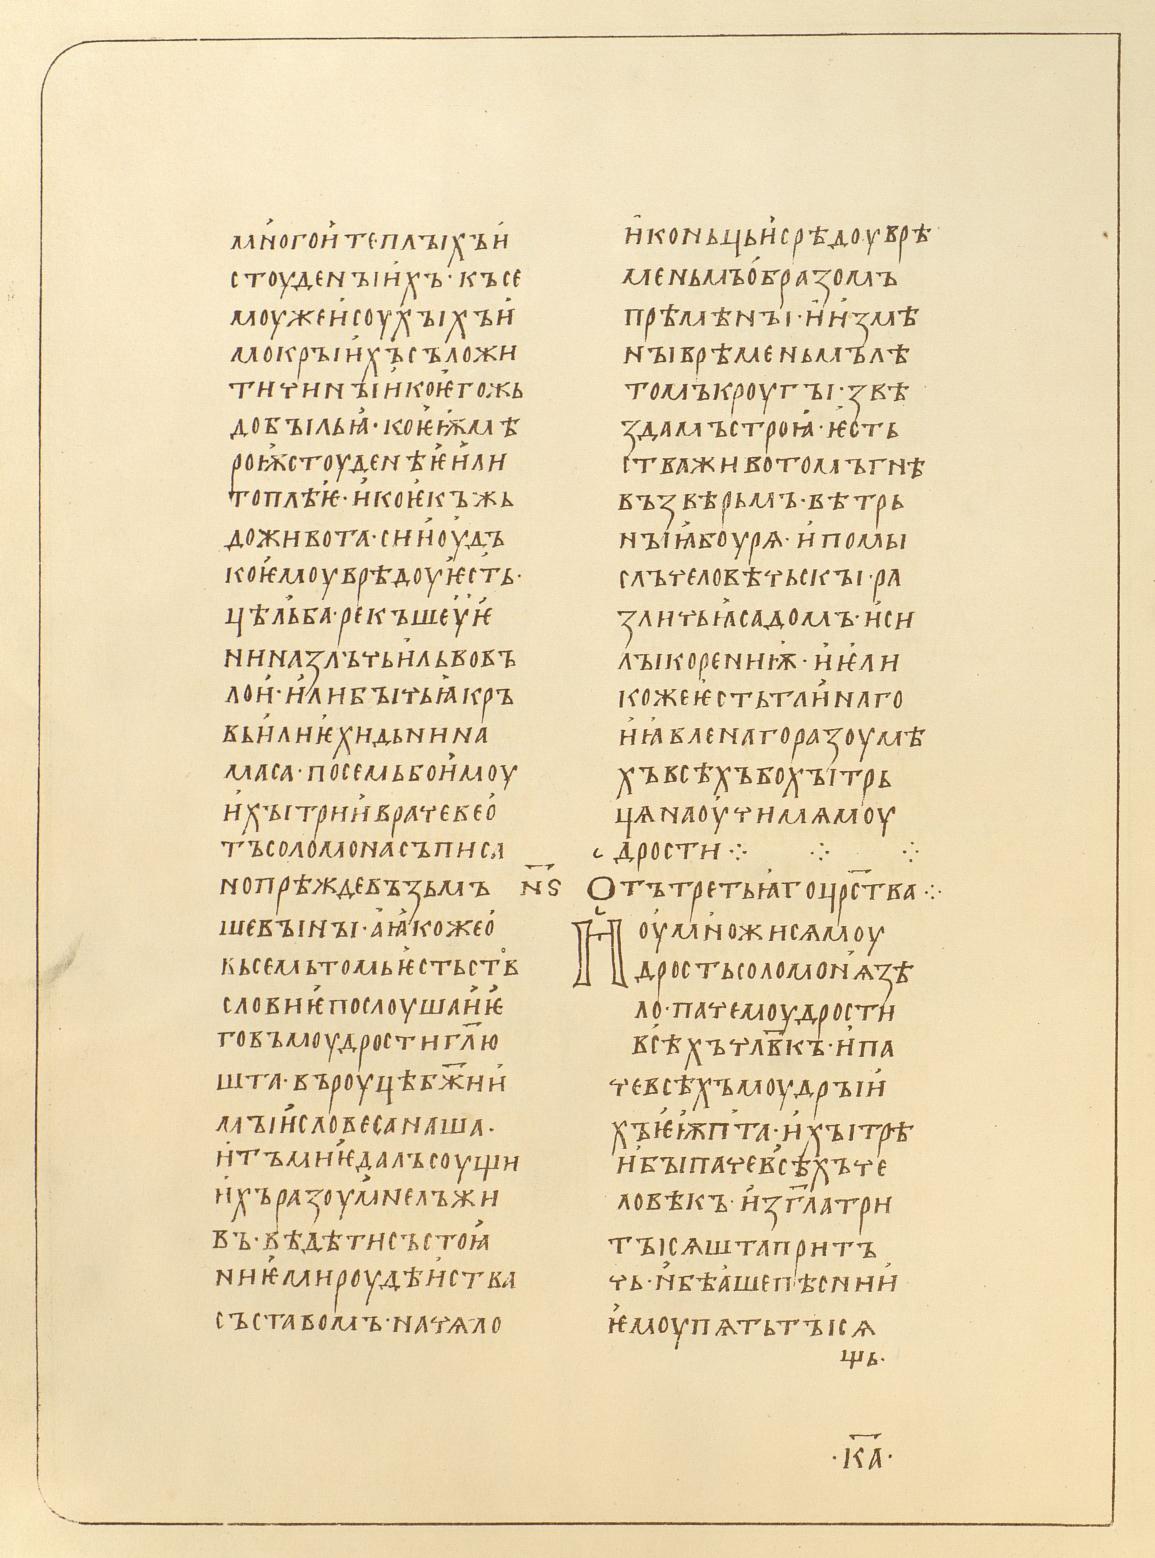 мн҄огои҄ теплꙑхъи҄
стоуденъіи҄хъ· късе
моужеи҄соух҄ъіхъи҄
мокръіи҄хъсъложи
тичинъіи҄кок҄ѥгожь
добъільꙗ҄· кок҄ѥѭмѣ
роѭстоуденѣѥ҄и҄ли
топлѣѥ҄· и҄коѥ҄къжь
доживота· сии҄оу҄дъ
коѥ҄моуврѣдоуѥ҄сть·
цѣльба· рекъшеу҄ѥ҄
ниназлъчьи҄львовъ
лои҄· и҄либъічьꙗ҄кръ
вьи҄лиѥ҄хидьнина
маса· посемьбои҄моу
и҄хъітрии҄врачевео҄
тъсоломонасъписа
нопрѣждевъзьмъ
шевъінъі· а҄ꙗ҄кожео҄
кьсемьтомьѥ҄стьств
словиѥ҄послоушаниѥ҄
говъмоудростигл҃ю
шта· въроуцѣбж҃ии҄
мъіи҄словесанаша·
и҄тъмнѥ҄далъсоущи
и҄хъразоум҄нелъжи
въ· вѣдѣтисъстоꙗ҄
ниѥ҄мироудѣи҄ства
съставомъ· начѧло
и҄коньцьи҄срѣдоуврѣ
меньмъо҄бразомъ
прѣмѣнъі· и҄и҄змѣ
нъіврѣменьмълѣ
томъкроугъі· звѣ
здамъстроꙗ҄· ѥ҄сть
стважнвотомъгнѣ
възвѣрьмъ· вѣтрь
нъіꙗ҄боурѧ· и҄помы
слъчеловѣчьскъі· ра
зличьꙗ҄садомъ· и҄си
лъікорениѭ҄· и҄ѥ҄ли
кожеѥ҄стьтаи҄наго
и҄ꙗ҄вленагоразоумѣ
хъвсѣхъбохъітрь
цѧнаоу҄чимѧмоу
дрости ⁘ ⁘ ⁘
н҃ѕ Отътретьꙗгоцрс҃тва ⁘
И҄оу҄мн҄ожисѧмоу
дростьсоломон҄ѧзѣ
ло· пачемоудрости
вс҄ѣхъчлв҃къ· и҄па
чевсѣхъмоудръіи҄
хъѥ҄ѭп҄та· и҄хъітрѣ
и҄бъіпачевс҄ѣхъче
ловѣкъ· и҄згл҃атри
тъісѧштапритъ
чь· и҄бѣа҄шепѣснии҄
ѥ҄моупѧтьтъісѧ
щь·
·к҃а·